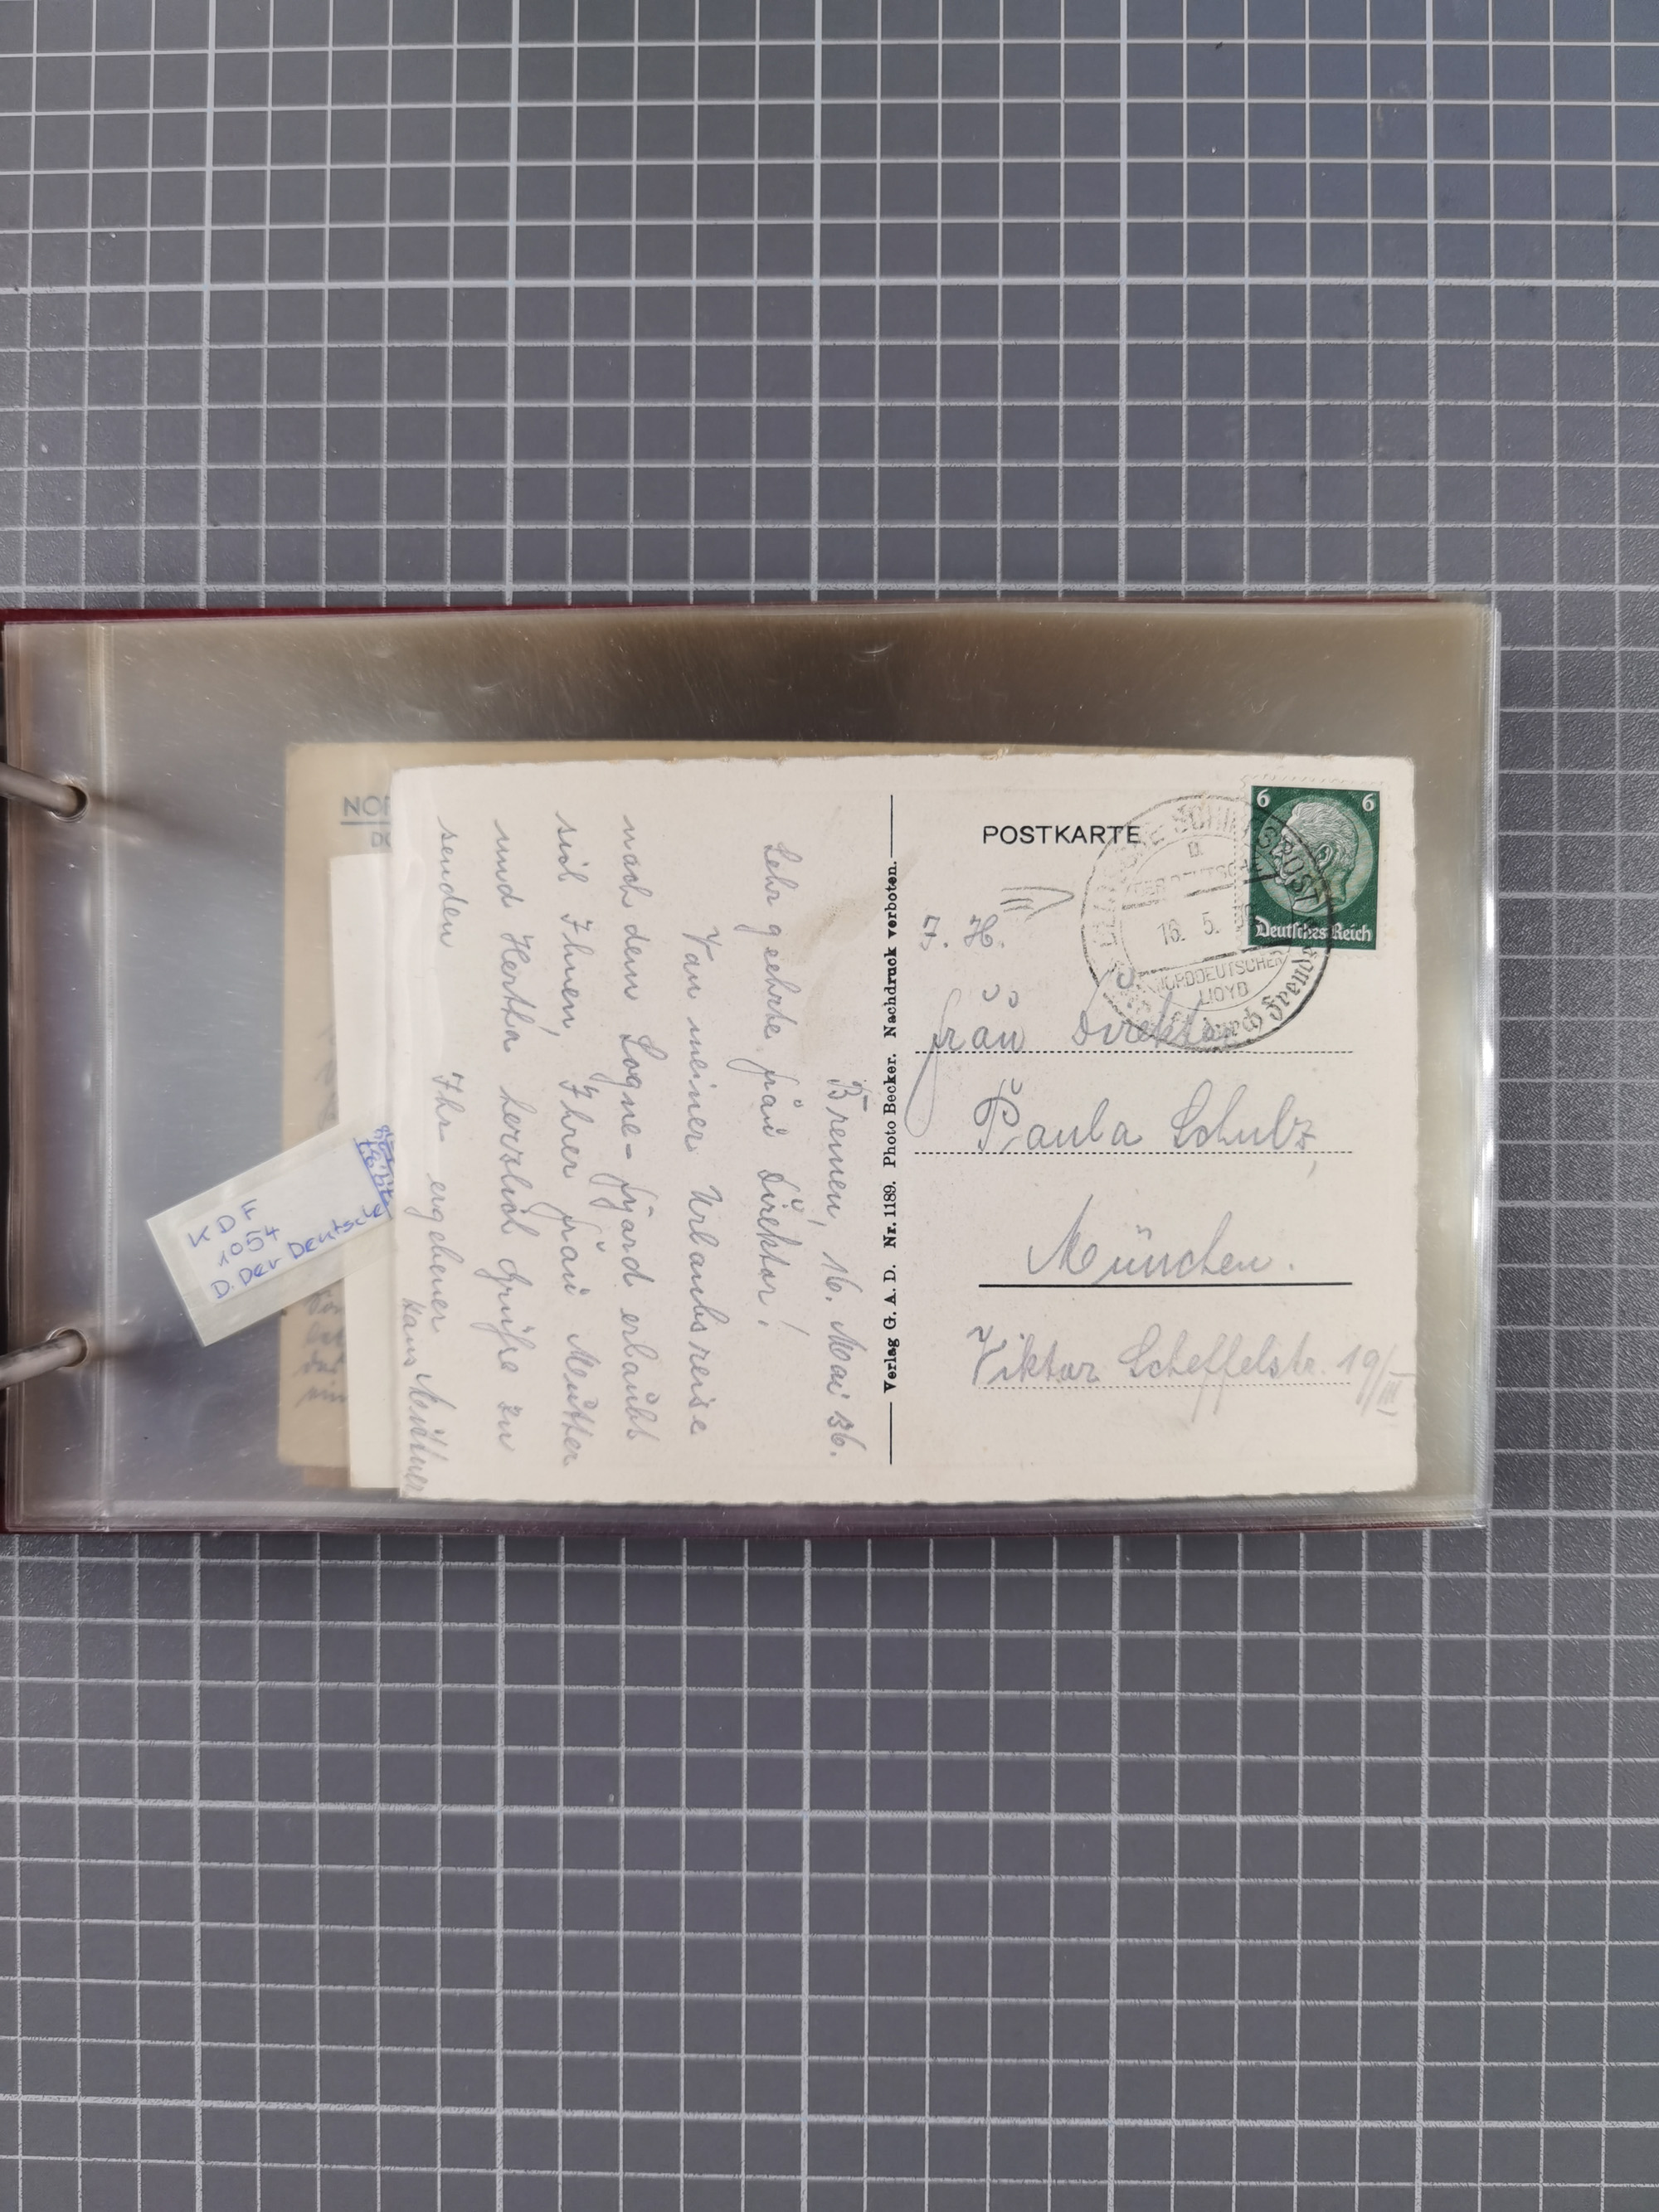 Bremen, 16. Mai 36.
Sehr geehrte Frau Direktor!
Von meiner Urlaubsreise
nach dem Sogne-Fjord erlaubt
sich Ihnen, Ihrer Frau Mutter
und Hertha herzlich Grüße zu
senden Ihr ergebener
Hans
Verlag G. A. D. Nr. 1189. Photo Becker. Nachdruck verboten.
POSTKARTE
6 6
Deutsches Reich
DEUTSCHE SCHIFFSPOST
D.
DER DEUTSCHE
16. 5. 36
NORDDEUTSCHER
LLOYD
Kraft durch Freude
I. H.
Frau Direktor
Paula Schulz,
München.
Viktor Scheffelstr. 19/III,
KDF
1054
D. Der Deutsche
NOR